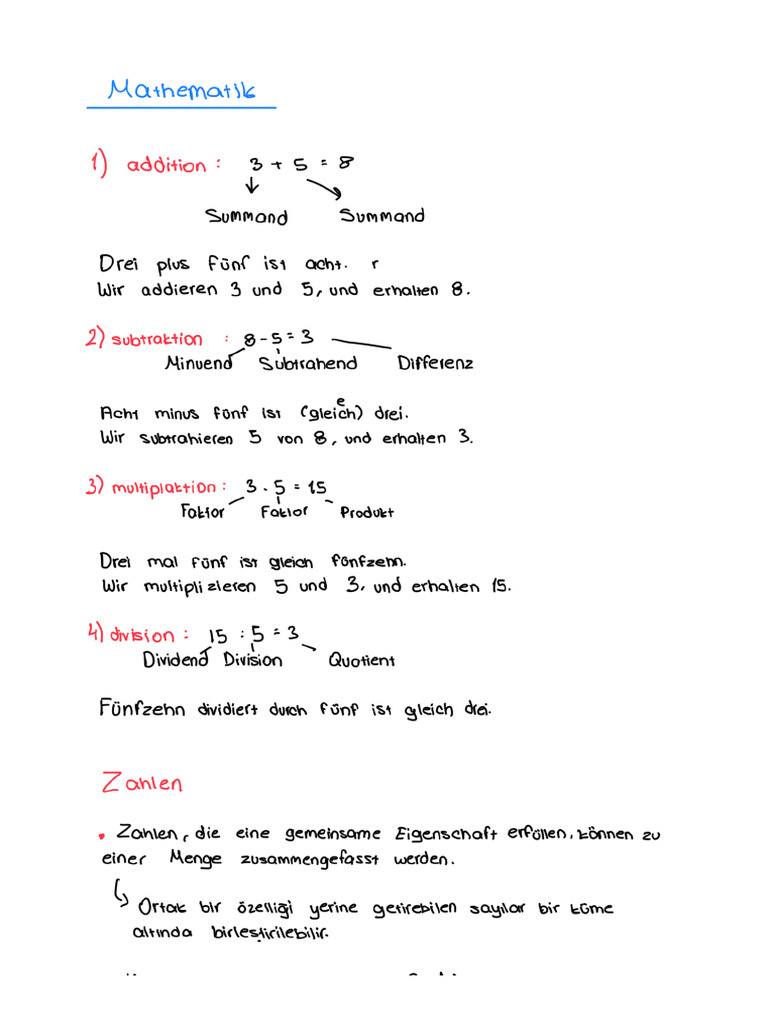 Mathematik
1) addition : 3 + 5 = 8
Summand Summand
Drei plus Fünf ist acht. r
Wir addieren 3 und 5, und erhalten 8.
2) subtraktion : 8 - 5 = 3
Minuend Subtrahend Differenz
Acht minus fünf ist (gleich) drei.
e
Wir subtrahieren 5 von 8, und erhalten 3.
3) multiplaktion : 3 . 5 = 15
Faktor Faktor Produkt
Drei mal fünf ist gleich fünfzehn.
Wir multiplizieren 5 und 3, und erhalten 15.
4) division : 15 : 5 = 3
Dividend Division Quotient
Fünfzehn dividiert durch fünf ist gleich drei.
Zahlen
• Zahlen, die eine gemeinsame Eigenschaft erfüllen, können zu
einer Menge zusammengefasst werden.
Ortak bir özelliği yerine getirebilen sayılar bir küme
altında birleştirilebilir.